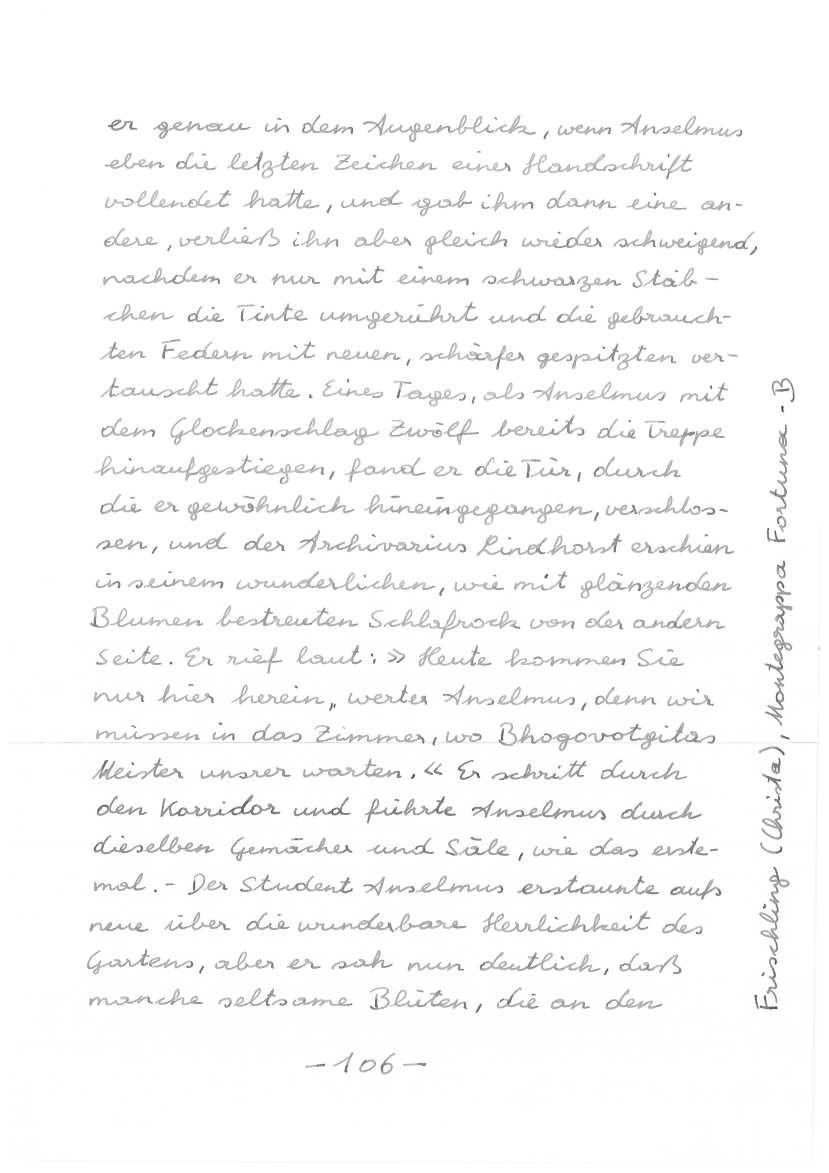 er genau in dem Augenblick, wenn Anselmus
eben die letzten Zeichen einer Handschrift
vollendet hatte, und gab ihm dann eine an-
dere, verließ ihn aber gleich wieder schweigend,
nachdem er nur mit einem schwarzen Stäb-
chen die Tinte umgerührt und die gebrauch-
ten Federn mit neuen, schärfer gespitzten ver-
tauscht hatte. Eines Tages, als Anselmus mit
dem Glockenschlag Zwölf bereits die Treppe
hinaufgestiegen, fand er die Tür, durch
die er gewöhnlich hineingegangen, verschlos-
sen, und der Archivarius Lindhorst erschien
in seinem wunderlichen, wie mit glänzenden
Blumen bestreuten Schlafrock von der andern
Seite. Er rief laut: » Heute kommen Sie
nur hier herein, werter Anselmus, denn wir
müssen in das Zimmer, wo Bhogovotgitas
Meister unsrer warten. « Er schritt durch
den Korridor und führte Anselmus durch
dieselben Gemächer und Säle, wie das erste-
mal. - Der Student Anselmus erstaunte aufs
neue über die wunderbare Herrlichkeit des
Gartens, aber er sah nun deutlich, daß
manche seltsame Blüten, die an den
- 106 -
Frischling (Christa), Montegrappa Fortuna - B